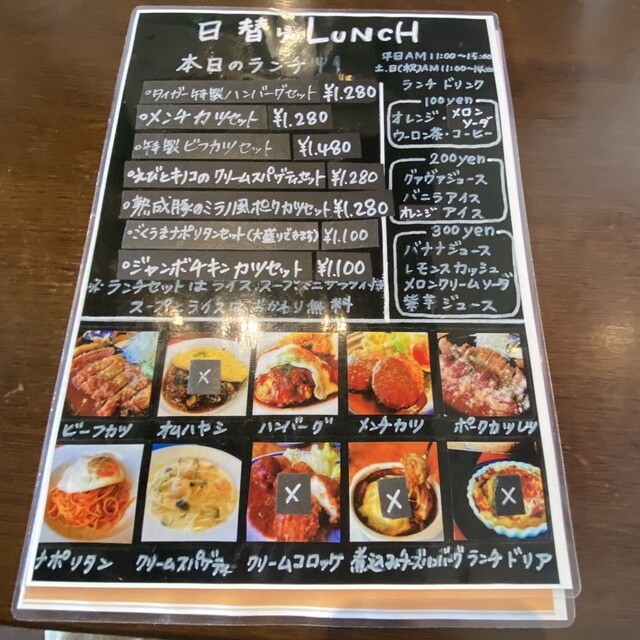 日替り LUNCH
本日のランチ
平日AM11:00〜15:00
土.日(祝)AM11:00〜14:00
。タイガー特製ハンバーグセット ¥1.280
。メンチカツセット ¥1.280
。特製ビフカツセット ¥1.480
。えびとキノコのクリームスパゲティセット ¥1.280
。熟成豚のミラノ風ポークカツセット ¥1.280
。ごくうまナポリタンセット(大盛りできます) ¥1.100
。ジャンボチキンカツセット ¥1.100
※ランチセットはライス.スープ.ミニサラダ付
スープとライスはおかわり無料
ランチドリンク
100yen
オレンジ・メロンソーダ
ウーロン茶・コーヒー
200yen
グァヴァジュース
バニラアイス
オレンジアイス
300yen
バナナジュース
レモンスカッシュ
メロンクリームソーダ
紫芋ジュース
X
ビーフカツ オムハヤシ ハンバーグ メンチカツ ポークカツレツ
X X X
ナポリタン クリームスパゲティ クリームコロッケ 煮込みチーズハンバーグ ランチドリア